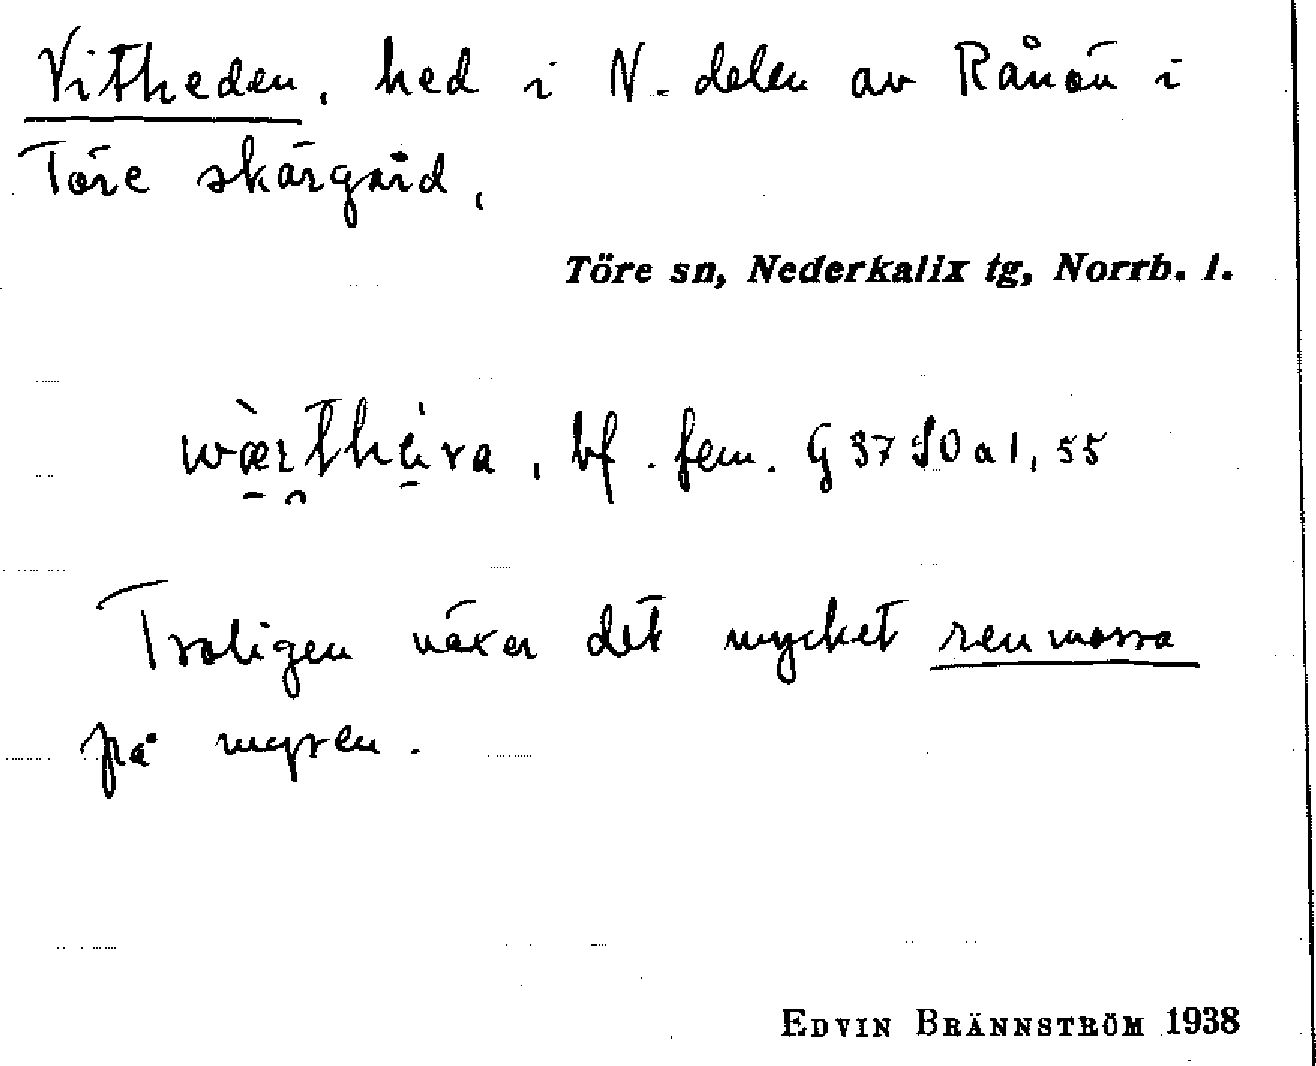 Vitheden, hed i N. delen av Rånön i
Töre skärgård.
Töre sn, Nederkalix tg, Norrb. l.
bf. fem. G 37 SO a 1, 55
Troligen växer det mycket renmossa
på myren.
EDVIN BRÄNNSTRÖM 1938